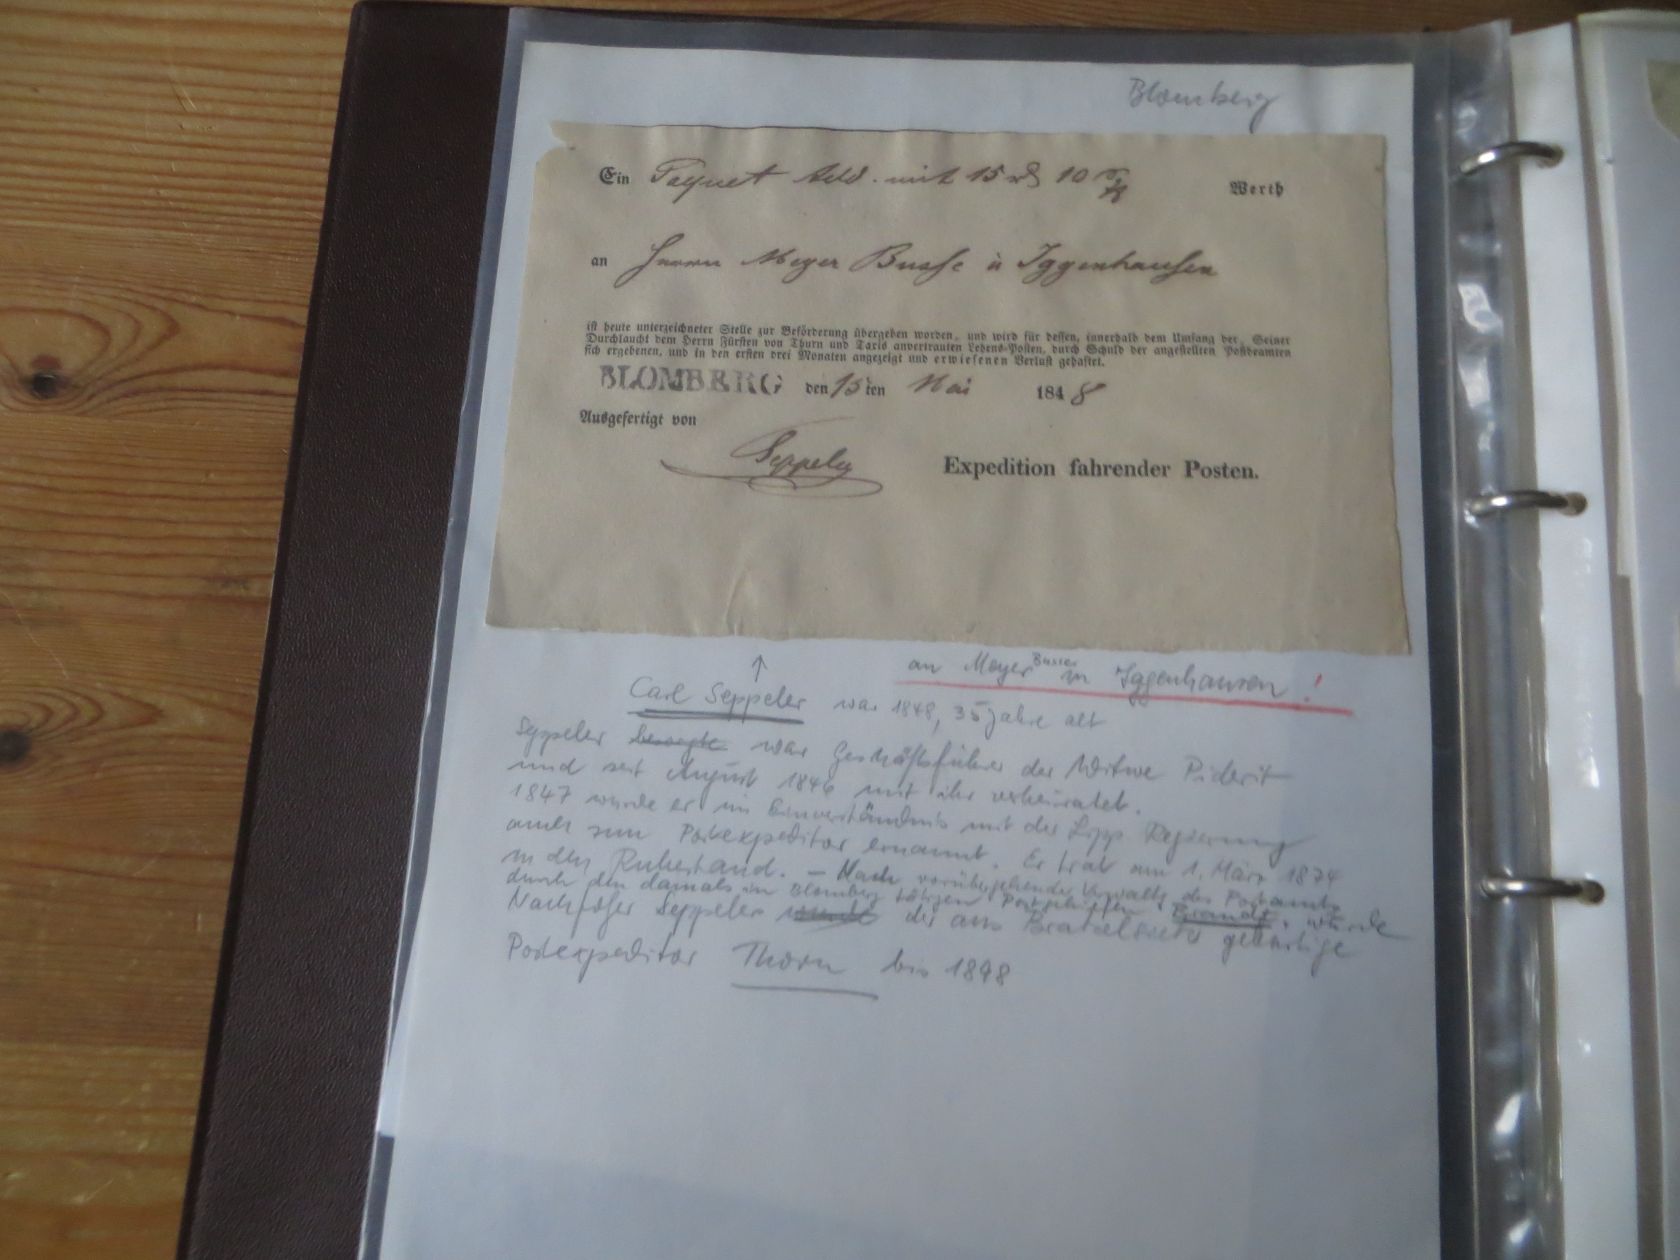 Blomberg
Ein Paquet Add. mit 15 10 Werth
an Herrn Meyer Busse Iggenhausen
ist heute unterzeichneter Stelle zur Beförderung übergeben worden, und wird für dessen, innerhalb dem Umfang der, Seiner
Durchlaucht dem Herrn Fürsten von Thurn und Taxis anvertrauten Lehens-Posten, durch Schuld der angestellten Postbeamten
sich ergebenen, und in den ersten drei Monaten angezeigt und erwiesenen Verlust gehaftet.
BLOMBERG den 15ten Mai 1848
Ausgefertigt von
Seppeler
Expedition fahrender Posten.
an Meyer Busse in Iggenhausen!
Carl Seppeler war 1848, 35 Jahre alt
Seppeler war Geschäftsführer der Witwe Piderit
und seit August 1846 mit ihr verheiratet.
1847 wurde er im Einverständnis mit der Lipp. Regierung
auch zum Postexpeditor ernannt. Er trat am 1. März 1874
in den Ruhestand. – Nach vorübergehender Verwaltg des Postamts
durch den damals in Blomberg tätigen Postgehilfen Brandt, wurde
Nachfolger Seppeler der aus gebürtige
Postexpeditor Thorn bis 1898